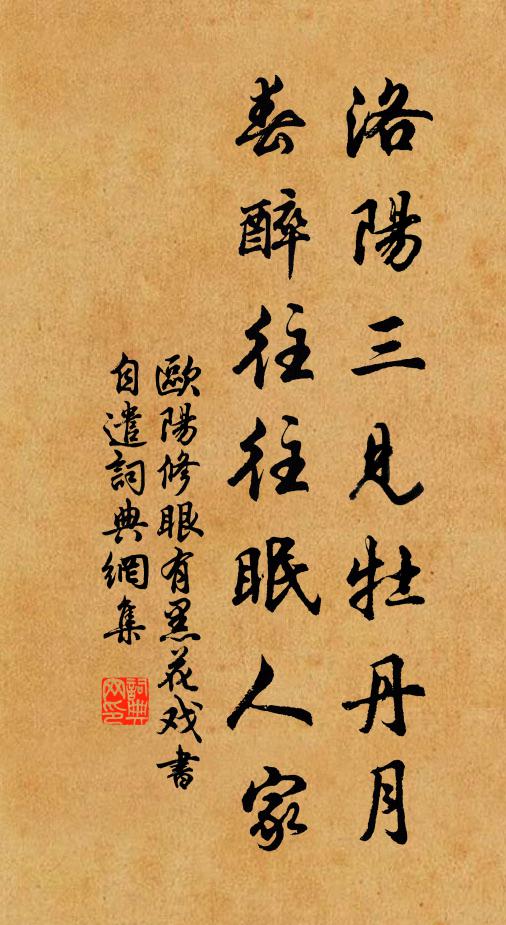 洛陽三見牡丹月
春醉往往眠人家
歐陽修眼有黑花戏書
自遣詞典網集
詞典网印